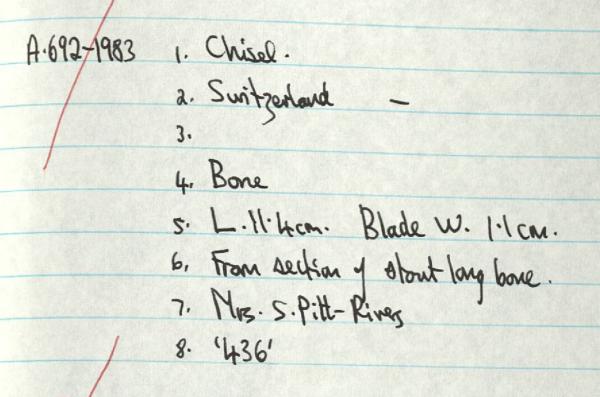 A.692-1983 1. Chisel.
2. Switzerland —
3.
4. Bone
5. L. 11.4cm. Blade W. 1.1cm.
6. From section of stout long bone.
7. Mrs. S. Pitt-Rivers
8. '436'